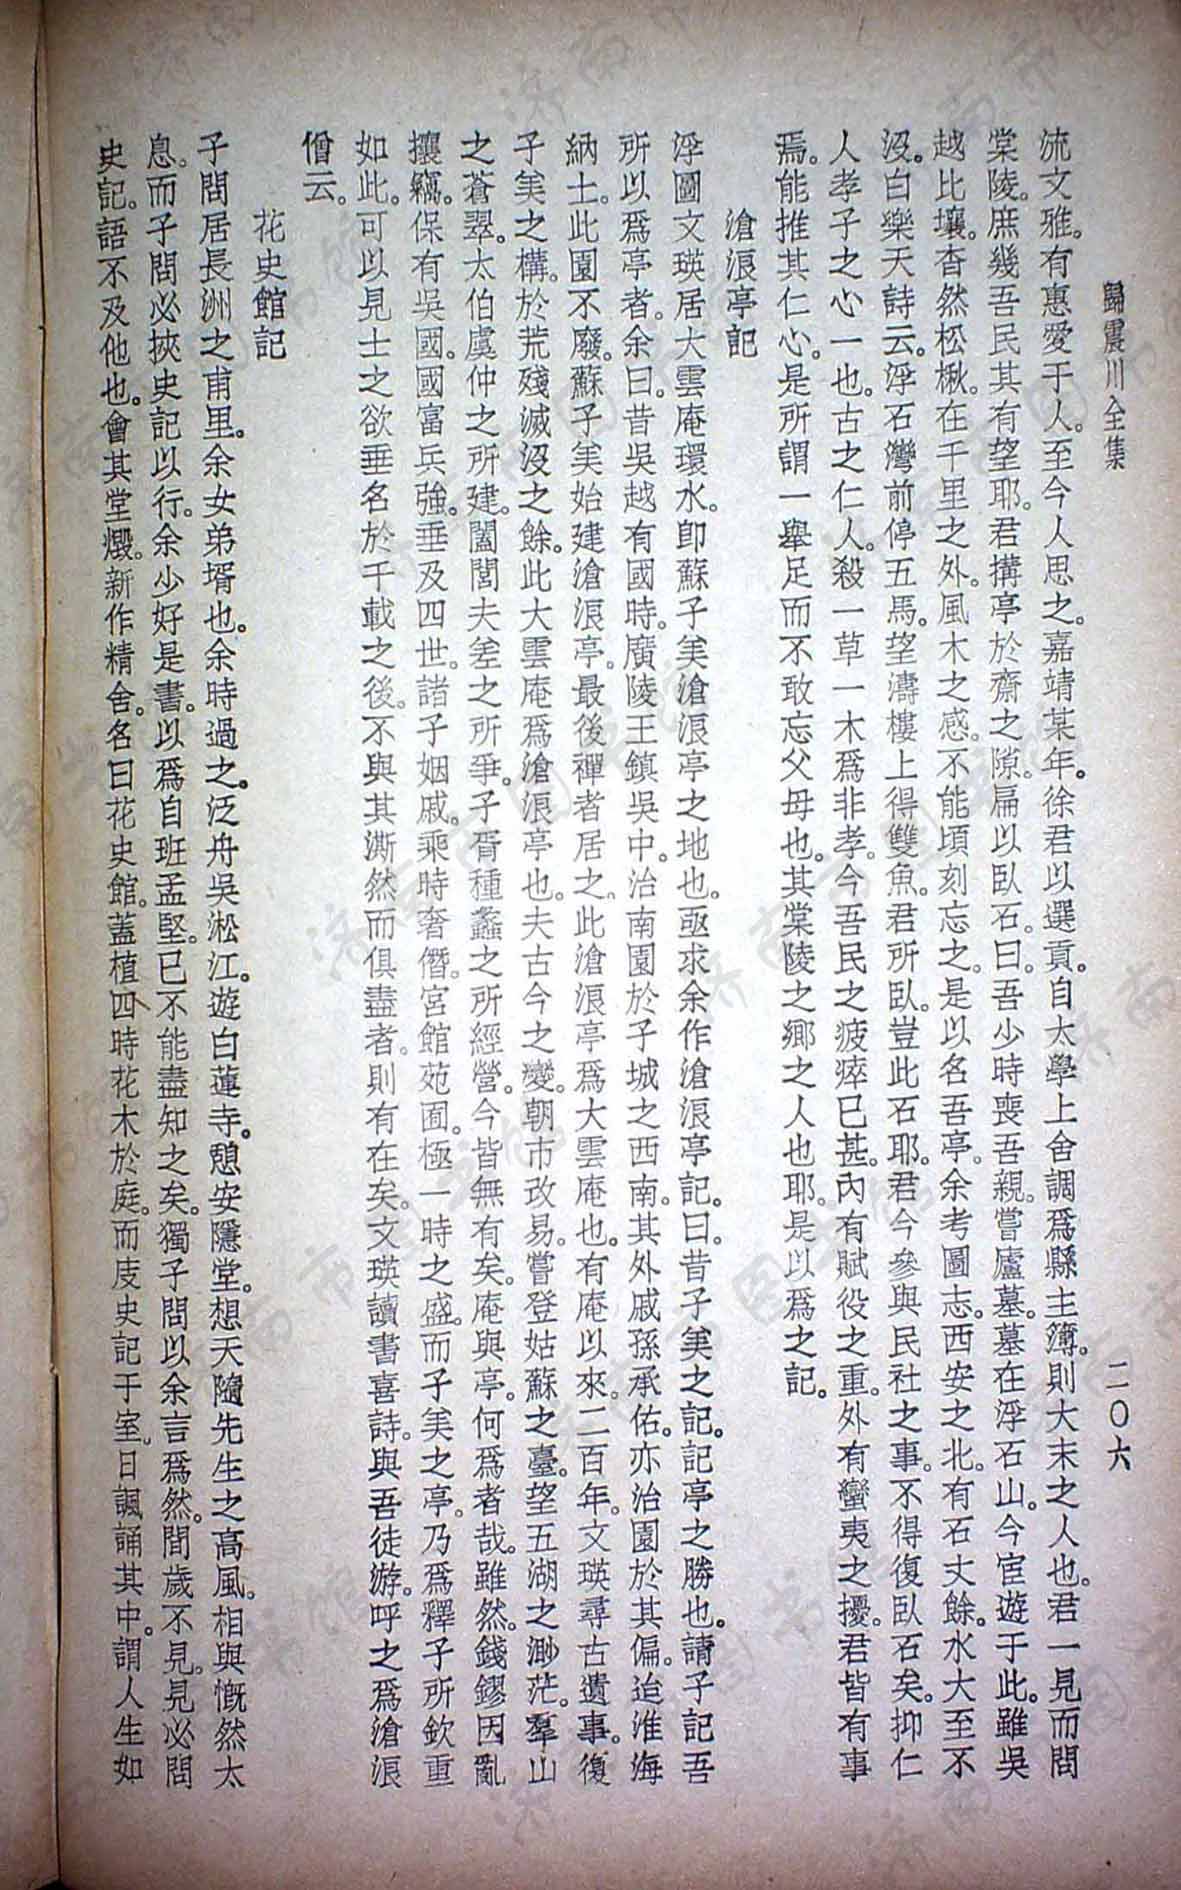 歸震川全集
二〇六
流文雅。有惠愛于人。至今人思之。嘉靖某年。徐君以選貢。自太學上舍調爲縣主簿。則大末之人也。君一見而問
棠陵。庶幾吾民其有望耶。君搆亭於齋之隙。扁以臥石。曰。吾少時喪吾親。嘗廬墓。墓在浮石山。今宦遊于此。雖吳
越比壤。杳然松楸。在千里之外。風木之感。不能頃刻忘之。是以名吾亭。余考圖志。西安之北。有石丈餘。水大至不
沒。白樂天詩云。浮石灣前停五馬。望濤樓上得雙魚。君所臥。豈此石耶。君今參與民社之事。不得復臥石矣。抑仁
人孝子之心一也。古之仁人。殺一草一木爲非孝。今吾民之疲瘁已甚。內有賦役之重。外有蠻夷之擾。君皆有事
焉。能推其仁心。是所謂一舉足而不敢忘父母也。其棠陵之鄉之人也耶。是以爲之記。
滄浪亭記
浮圖文瑛居大雲庵環水。卽蘇子美滄浪亭之地也。亟求余作滄浪亭記。曰。昔子美之記。記亭之勝也。請子記吾
所以爲亭者。余曰。昔吳越有國時。廣陵王鎮吳中。治南園於子城之西南。其外戚孫承佑。亦治園於其偏。迨淮海
納土。此園不廢。蘇子美始建滄浪亭。最後禪者居之。此滄浪亭爲大雲庵也。有庵以來二百年。文瑛尋古遺事。復
子美之構。於荒殘滅沒之餘。此大雲庵爲滄浪亭也。夫古今之變。朝市改易。嘗登姑蘇之臺。望五湖之渺茫。羣山
之蒼翠。太伯虞仲之所建。闔閭夫差之所爭。子胥種蠡之所經營。今皆無有矣。庵與亭。何爲者哉。雖然。錢鏐因亂
攘竊。保有吳國。國富兵強。垂及四世。諸子姻戚。乘時奢僭。宮館苑囿。極一時之盛。而子美之亭。乃爲釋子所欽重
如此。可以見士之欲垂名於千載之後。不與其澌然而俱盡者。則有在矣。文瑛讀書喜詩。與吾徒游。呼之爲滄浪
僧云。
花史館記
子問居長洲之甫里。余女弟壻也。余時過之。泛舟吳淞江。遊白蓮寺。憩安隱堂。想天隨先生之高風。相與慨然太
息。而子問必挾史記以行。余少好是書。以爲自班孟堅。已不能盡知之矣。獨子問以余言爲然。間歲不見。見必問
史記。語不及他也。會其堂燬。新作精舍。名曰花史館。蓋植四時花木於庭。而庋史記于室。日諷誦其中。謂人生如